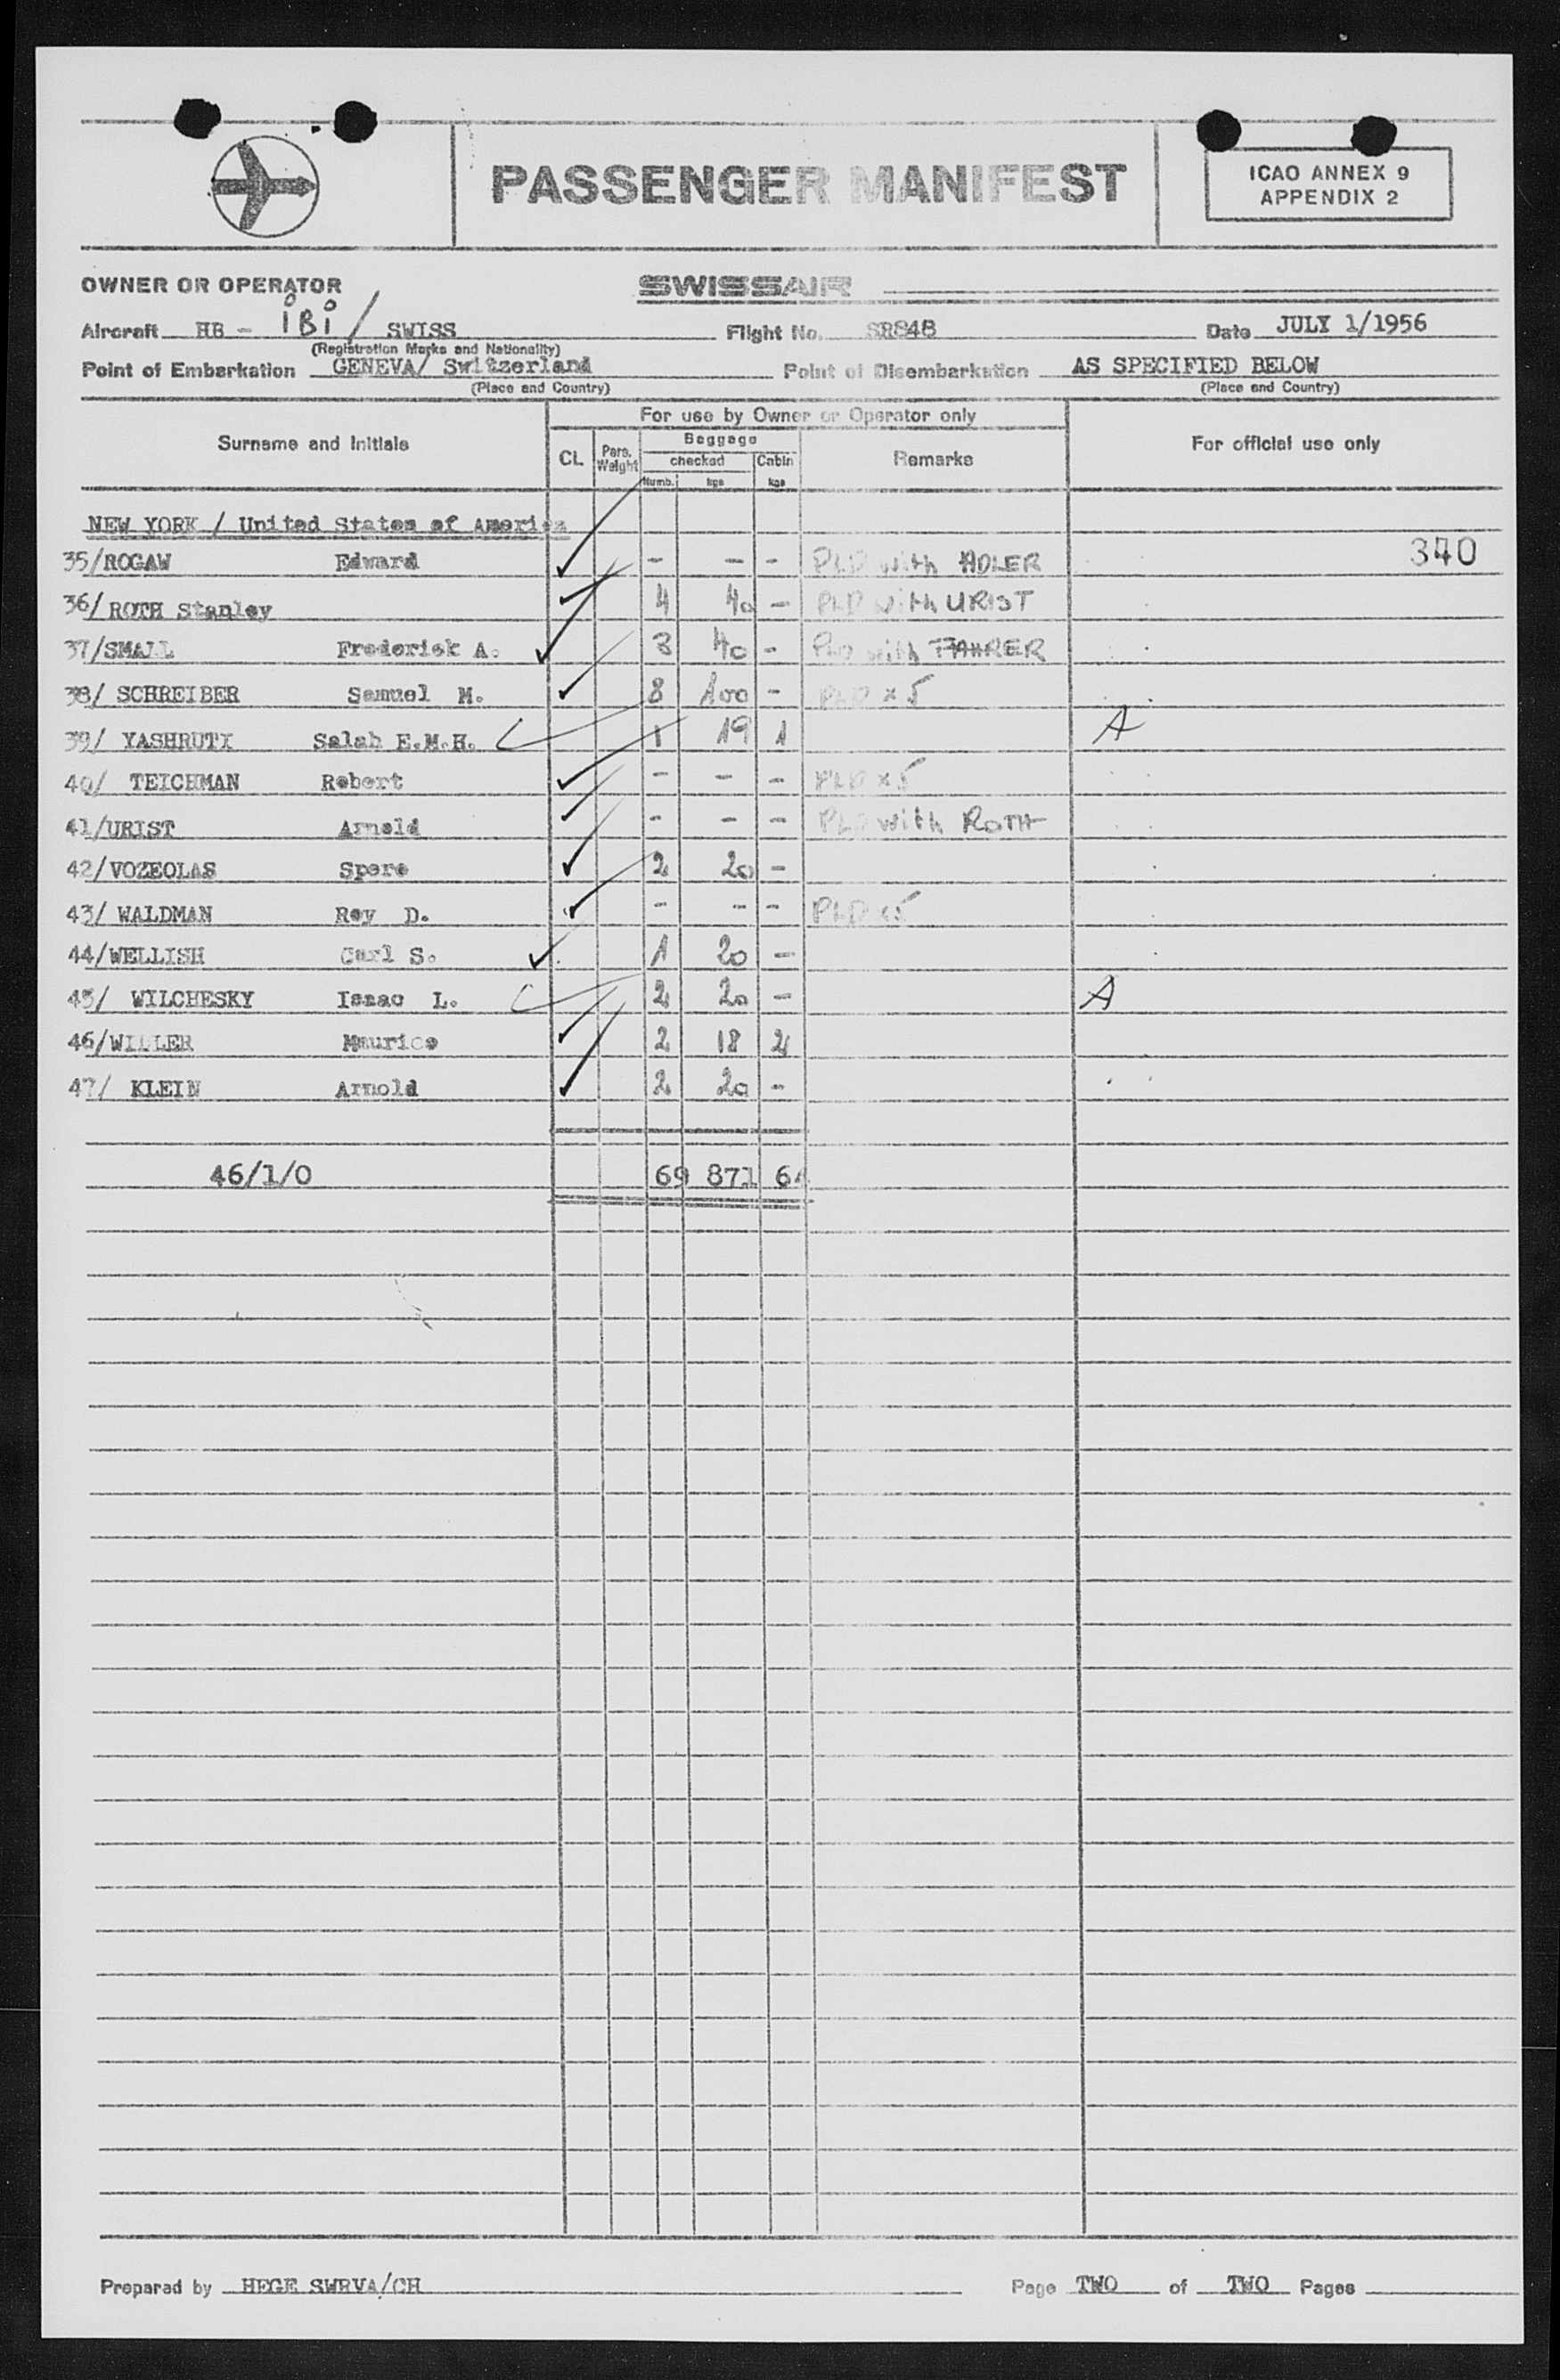 PASSENGER MANIFEST
ICAO ANNEX 9
APPENDIX 2
OWNER OR OPERATOR SWISSAIR
Aircraft HB - iBi / SWISS Flight No. SR848 Date JULY 1/1956
(Registration Marks and Nationality)
Point of Embarkation GENEVA/ Switzerland Point of Disembarkation AS SPECIFIED BELOW
(Place and Country) (Place and Country)
For use by Owner or Operator only
Surname and Initials CL Pers. Weight Baggage checked Numb. kgs Cabin kgs Remarks For official use only
NEW YORK / United States of America
35/ROGAW Edward - - - PLD with ADLER 340
36/ ROTH Stanley 4 40 - PLD with URIST
37/SMALL Frederick A. 3 40 - PLD with FAHRER
38/ SCHREIBER Samuel M. 8 100 - PLD x 5
39/ YASHRUTI Salah E.M.H. 1 19 1 A
40/ TEICHMAN Robert - - - PLD x 5
41/URIST Arnold - - - PLD with ROTH
42/VOZEOLAS Spero 2 20 -
43/ WALDMAN Roy D. - - - PLD x5
44/WELLISH Carl S. 1 20 -
45/ WILCHESKY Isaac L. 2 20 - A
46/WILLER Maurice 2 18 2
47/ KLEIN Arnold 2 20 -
46/1/0 69 871 64
Prepared by HEGE SWRVA/CH Page TWO of TWO Pages